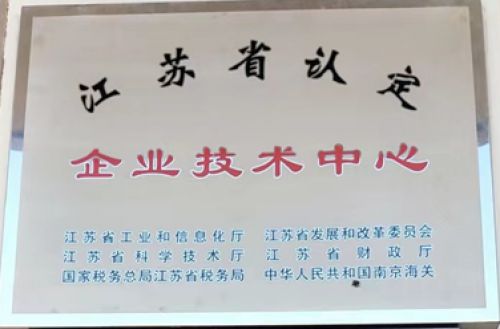 江苏省认定
企业技术中心
江苏省工业和信息化厅 江苏省发展和改革委员会
江苏省科学技术厅 江苏省财政厅
国家税务总局江苏省税务局 中华人民共和国南京海关